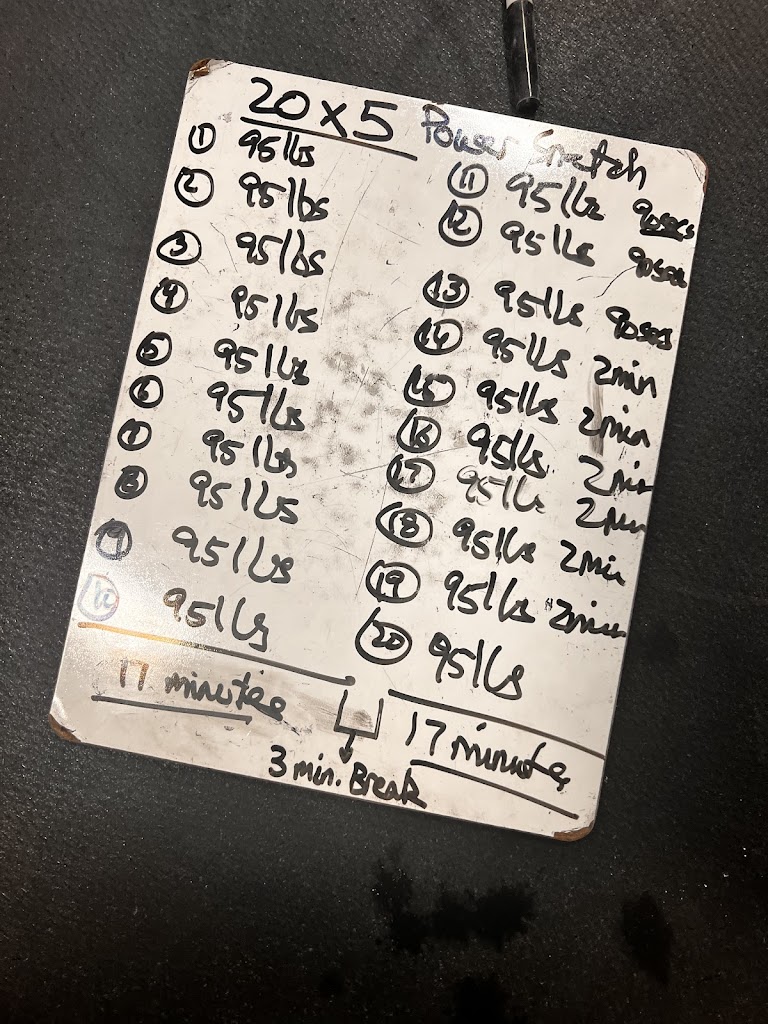 20 x 5 Power Snatch
1 95 lbs
2 95 lbs
3 95 lbs
4 95 lbs
5 95 lbs
6 95 lbs
7 95 lbs
8 95 lbs
9 95 lbs
10 95 lbs
17 minutes
3 min. Break
11 95 lbs 90secs
12 95 lbs 90sec
13 95 lbs 90secs
14 95 lbs 2min
15 95 lbs 2min
16 95 lbs 2min
17 95 lbs 2min
18 95 lbs 2min
19 95 lbs 2min
20 95 lbs
17 minutes